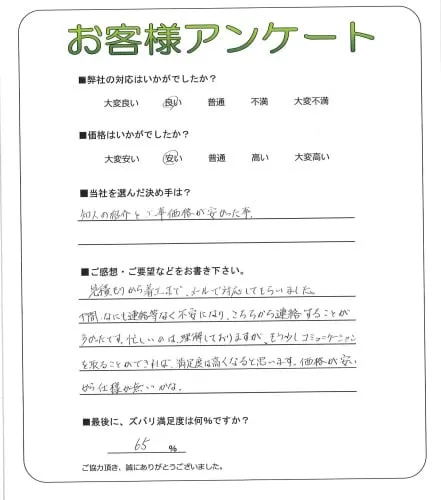 お客様アンケート
■弊社の対応はいかがでしたか？
大変良い 良い 普通 不満 大変不満
■価格はいかがでしたか？
大変安い 安い 普通 高い 大変高い
■当社を選んだ決め手は？
知人の紹介と工事価格が安かった事.
■ご感想・ご要望などをお書き下さい。
見積もりから着工まで、メールで対応してもらいました。
間、なにも連絡等なく不安になり、こちらから連絡することが
多かったです。忙しいのは、理解しておりますが、もう少しコミュニケーション
を取ることができれば、満足度は高くなると思います。価格が安い
から仕様が無いかな。
■最後に、ズバリ満足度は何%ですか？
65 %
ご協力頂き、誠にありがとうございました。